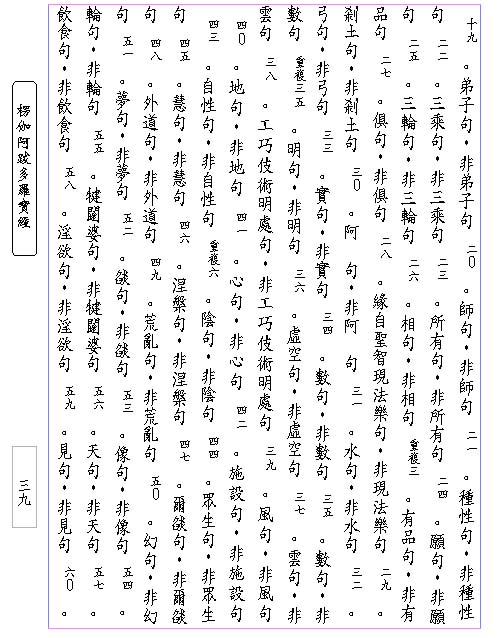 十九。弟子句・非弟子句二○。師句・非師句二一。種性句・非種性
句二二。三乘句・非三乘句二三。所有句・非所有句二四。願句・非願
句二五。三輪句・非三輪句二六。相句・非相句重複三。有品句・非有
品句二七。俱句・非俱句二八。緣自聖智現法樂句・非現法樂句二九。
剎土句・非剎土句三○。阿 句・非阿 句三一。水句・非水句三二。
弓句・非弓句三三。實句・非實句三四。數句・非數句三五。數句・非
數句重複三五。明句・非明句三六。虛空句・非虛空句三七。雲句・非
雲句三八。工巧伎術明處句・非工巧伎術明處句三九。風句・非風句
四○。地句・非地句四一。心句・非心句四二。施設句・非施設句
四三。自性句・非自性句重複六。陰句・非陰句四四。眾生句・非眾生
句四五。慧句・非慧句四六。涅槃句・非涅槃句四七。爾燄句・非爾燄
句四八。外道句・非外道句四九。荒亂句・非荒亂句五○。幻句・非幻
句五一。夢句・非夢句五二。燄句・非燄句五三。像句・非像句五四。
輪句・非輪句五五。犍闥婆句・非犍闥婆句五六。天句・非天句五七。
飲食句・非飲食句五八。淫欲句・非淫欲句五九。見句・非見句六○。
楞伽阿跋多羅寶經
三九